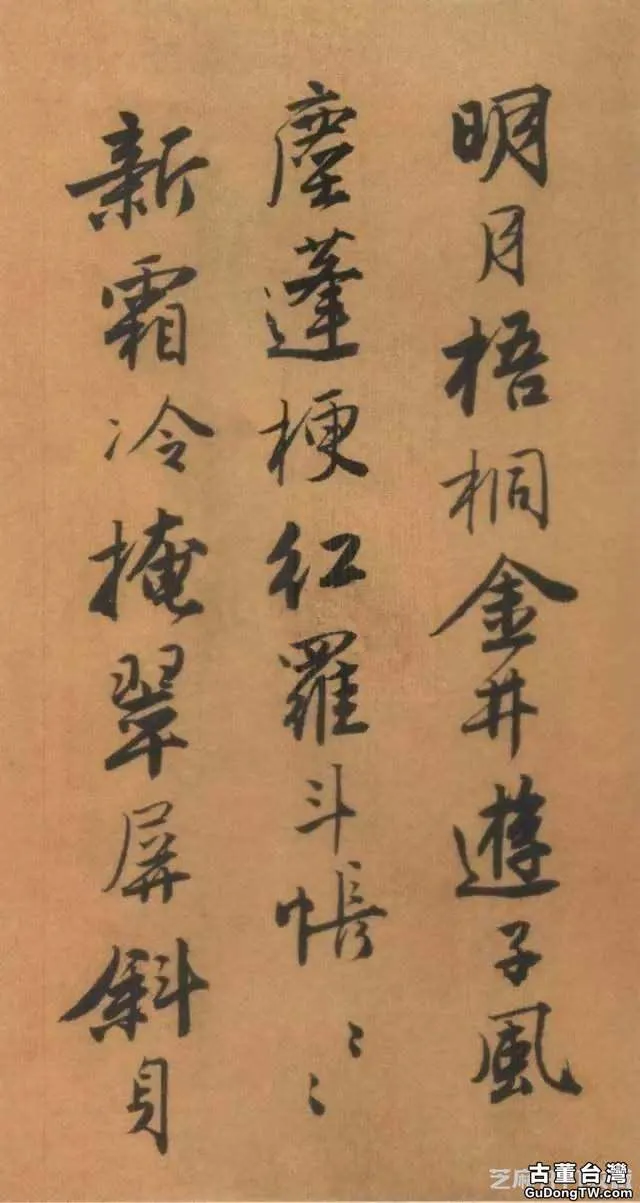 明月梧桐金井遊子風
塵蓬梗紅羅斗帳〻〻
新霜冷掩翠屏斜
古董台灣
GuDongTW.com